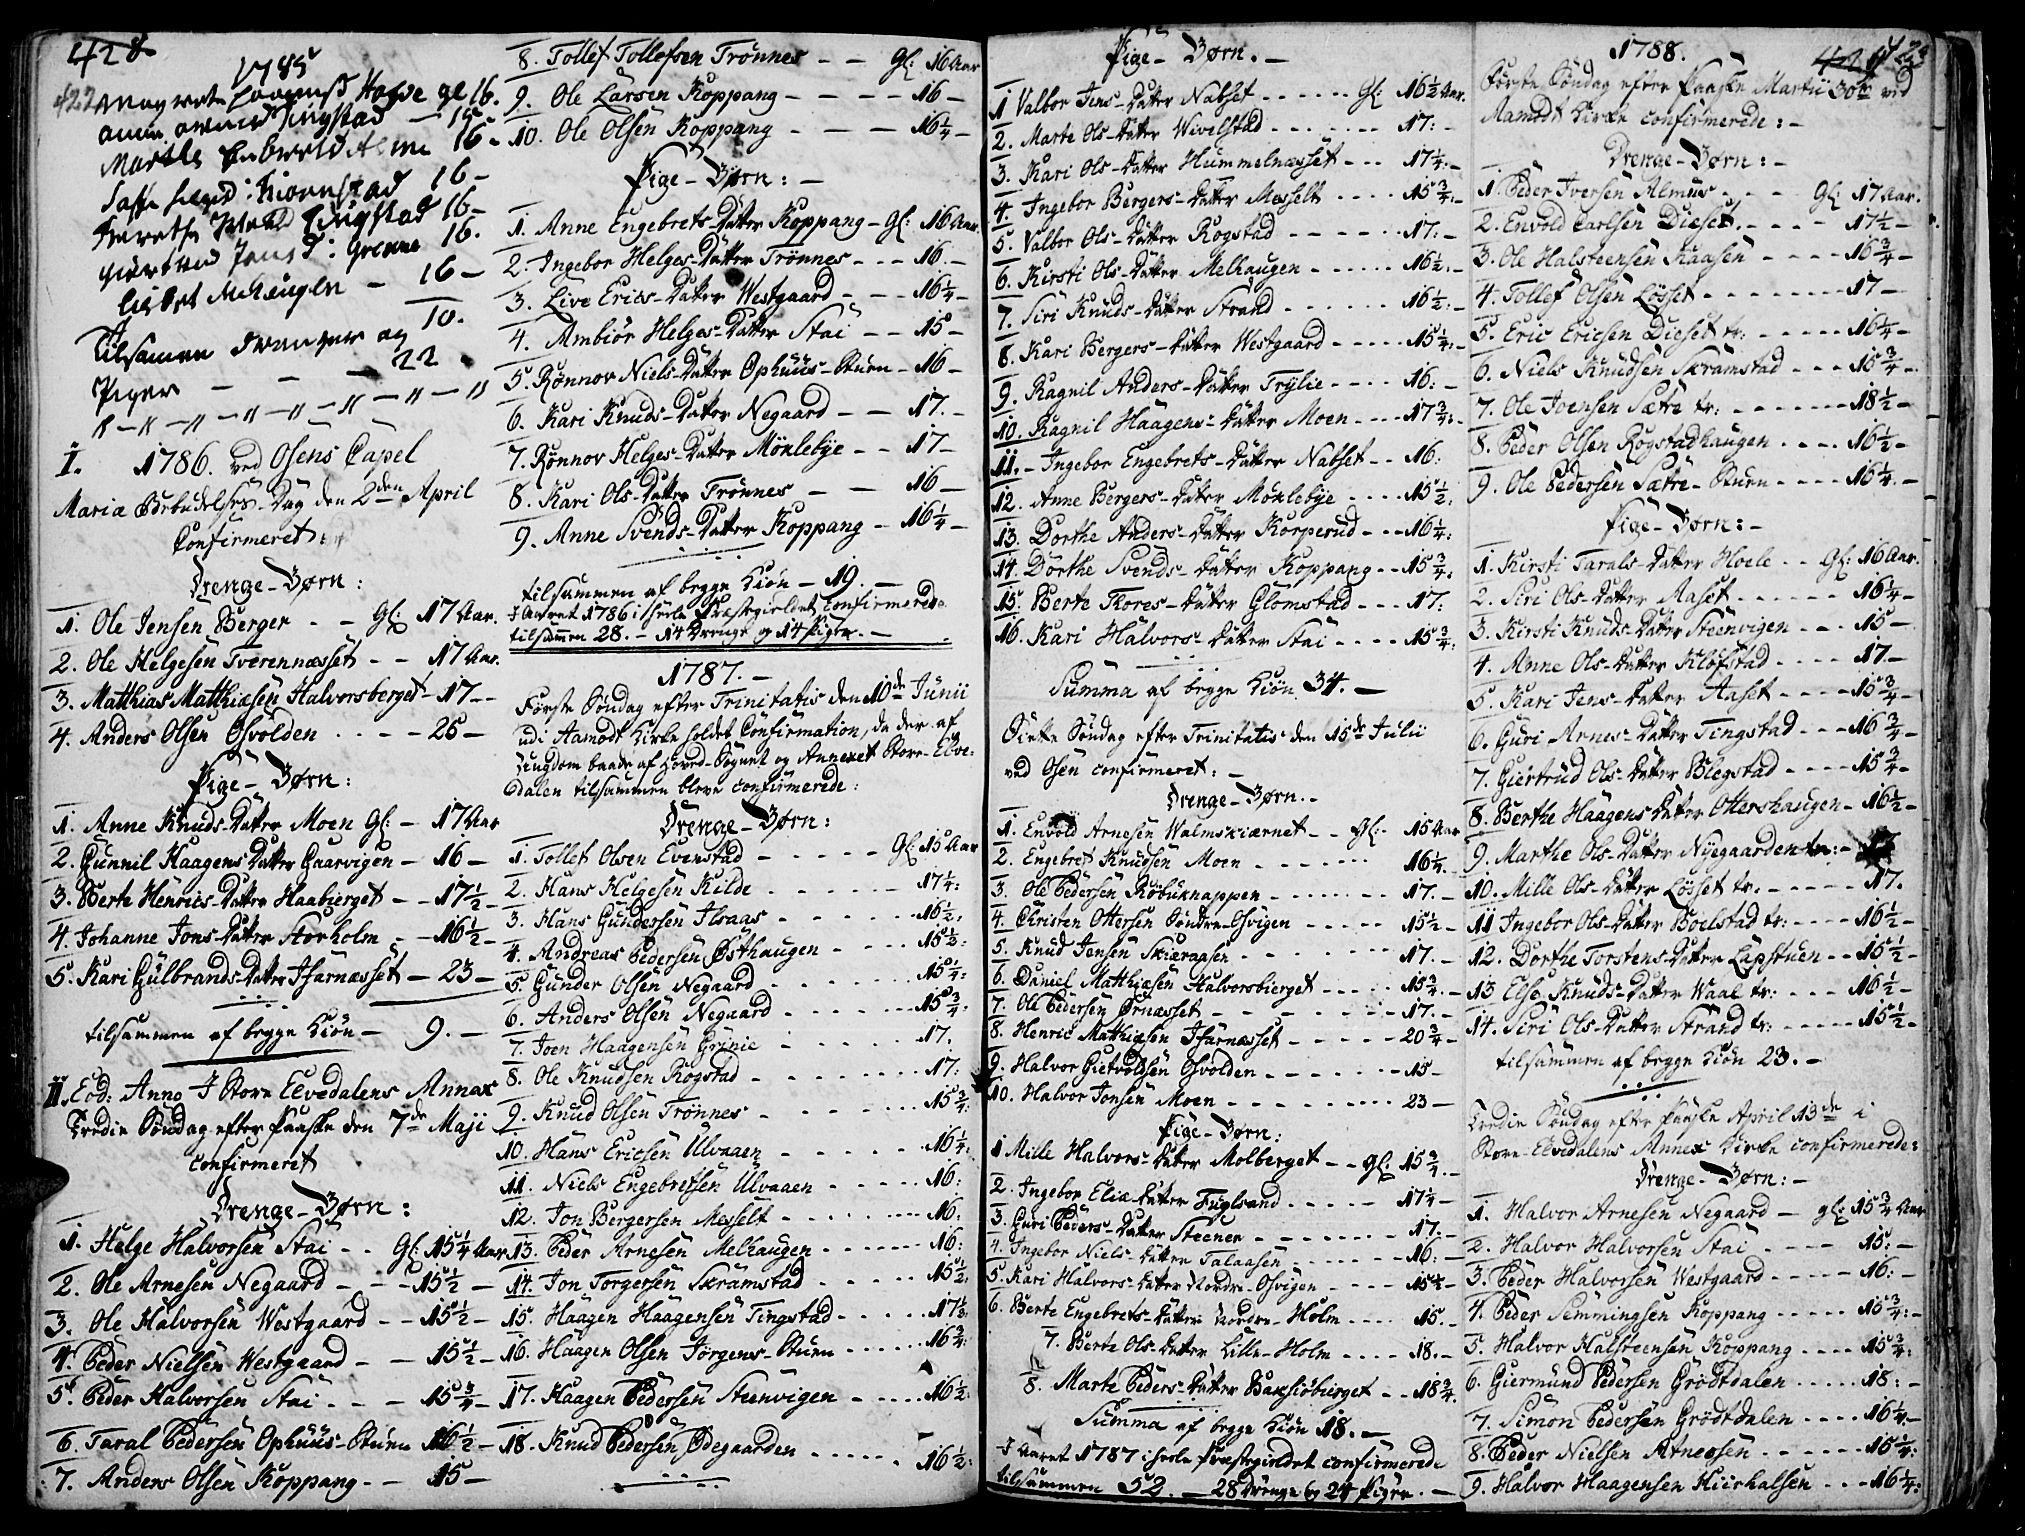 428
422
1785
Hagde gl 16.
Tingstad — 15
Marthe Alme 16 -
Kiernstad 16 -
Tingstad 16 -
Jens D: Grenne 16.
Lisbet Melhaugen — 16 —
10.
Tilsamen Drenger og
Piger — — — 22
I. 1786. ved Osens Capel
Maria Bebudelses-Dag den 2den April
Confirmeret:
Drenge-Børn:
1. Ole Jensen Berger - - Gl: 17 Aar.
2. Ole Helgesen Tverennæsset - - 17 Aar.
3. Matthias Matthiasen Halvorsberget - 17 -
4. Anders Olsen Osvolden - - - - 25 -
Pige-Børn:
1. Anne Knuds-Datter Moen Gl: - 17 Aar
2. Gunnil Haagens Datter Gaarvigen - 16 -
3. Berte Henrics-Datter Haaberget - - 17½ -
4. Johanne Jons-Datter Storholm - - 16½ -
5. Kari Gulbrands-Datter Ifarnæsset - 23 -
tilsammen af begge Kiøn - 9. -
II. Eod: Anno I Store Elvedalens Annex
Tredie Søndag efter Paaske den 7de Maji
confirmeret
Drenge-Børn:
1. Helge Halvorsen Stai - - Gl: 15¼ Aar.
2. Ole Arnesen Negaard - - - 15½ -
3. Ole Halvorsen Westgaard - - 15½ -
4. Peder Nielsen Westgaard - - 15½ -
5. Peder Halvorsen Stai - - - 15¾ -
6. Taral Pedersen Ophuus-Stuen 16½ -
7. Anders Olsen Koppang - - 15 -
8. Tollef Tollefsen Trønnes - - Gl: 16 Aar
9. Ole Larsen Koppang - - - - 16 -
10. Ole Olsen Koppang - - - - 16¼ -
Pige-Børn: -
1. Anne Engebrets-Datter Koppang - Gl: 16 Aar.
2. Ingebor Helges-Datter Trønnes - - - 16. -
3. Live Erics-Datter Westgaard - - - 16¼ -
4. Ambiør Helges-Datter Stai - - - 15 -
5. Rønnov Niels-Datter Ophuus-Stuen - 16 -
6. Kari Knuds-Datter Negaard - - 17. -
7. Rønnov Helges-Datter Møklebye - - 17 -
8. Kari Ols-Datter Trønnes - - - 16 -
9. Anne Svends-Datter Koppang - 16¼ -
tilsammen af begge Kiøn - 19. -
I Aaret 1786 i hele Præstegieldet confirmerede
tilsamen 28. - 14 Drenge og 14 Piger. -
1787. -
Første Søndag efter Trinitatis den 10de Junii
udi Aamodt Kirke holdet Confirmation, da der af
Ungdom baade af Hoved-Sognet og Annexet Store-Elve-
dalen tilsammen bleve confirmerede:
Drenge-Børn:
1. Tollef Olsen Evenstad - - - - - Gl: 15 Aar
2. Hans Helgesen Kilde - - - - - 17¼:
3. Hans Gundersen Ilsaas - - - - - 16½:
4. Andreas Pedersen Østhaugen - - - - 15½:
5. Gunder Olsen Negaard - - - - - 15¼:
6. Anders Olsen Negaard - - - - - 15¾:
7. Joen Haagensen Grinie - - - - - 17.
8. Ole Knudsen Rogstad - - - - - 17:
9. Knud Olsen Trønnes - - - - - 15¾:
10. Hans Ericsen Ulvaaen - - - - - 16¼:
11. Niels Engebretsen Ulvaaen - - - - 16:
12. Jon Bergersen Messelt - - - - - 16:
13. Peder Arnesen Melhaugen - - - - 16:
14. Jon Torgersen Skramstad - - - - 15½:
15. Haagen Haagensen Tingstad - - - - 17½:
16. Haagen Olsen Jørgens-Stuen - - - - 16¾:
17. Haagen Pedersen Steenvigen - - - - 16½:
18. Knud Pedersen Ødegaarden - - - - - 16½:
Pige-Børn. -
1 Valbor Jens-Datter Nabset - - - - - Gl: 16½ Aar.
2. Marte Ols-Datter Wivelstad - - - - - 17: -
3. Kari Ols-Datter Hummelnæsset - - - 17¼ -
4. Ingebor Bergers-Datter Messelt - - - - 15¾ -
5. Valbor Ols-Datter Rogstad - - - - - 17: -
6. Kirsti Ols-Datter Melhaugen - - - - - 16½: -
7. Siri Knuds-Datter Strand - - - - - 16½: -
8. Kari Bergers-Datter Westgaard - - - - 15¼: -
9. Ragnil Anders-Datter Trylie - - - - 16: -
10. Ragnil Haagens-Datter Moen - - - - 17¾: -
11. - Ingebor Engebrets-Datter Nabset - - 16:
12. Anne Bergers-Datter Møklebye - - - - 15½:
13. Dorthe Anders-Datter Korperud - - - 16¼:
14. Dorthe Svends-Datter Koppang - - 15¾:
15. Berte Thores-Datter Glomstad - - - 17:
16. Kari Halvors-Datter Stai - - - - 15¾:
Summa af begge Kiøn 34. -
Siette Søndag efter Trinitatis den 15de Julii
ved Osen confirmeret: -
Drenge-Børn. -
1. Envold Arnesen Walmskiærnet - - gl: - 15 Aar
2. Engebret Knudsen Moen - - - - - 16¼ -
3. Ole Pedersen Røbuknappen - - - - - 17. -
4. Christen Ottersen Søndre-Osvigen - - - - 15½ -
5. Knud Jensen Skiæraasen - - - - - 17. -
6. Daniel Matthiasen Halvorsbierget - - - - 15¾ -
7. Ole Pedersen Ørnæsset - - - - - - 17. -
8. Henric Matthiasen Ifarnæsset - - - - - 20¾ -
9. Halvor Gietvoldsen Osvolden - - - - - 15 -
10. Halvor Jonsen Moen - - - - - - 23 -
Pige-Børn:
1 Mille Halvors-Datter Molberget - - gl: 15¾ -
2. Ingebor Eliæ-Datter Fuglsand - - - - - 17¼ -
3. Guri Peders-Datter Steener - - - - - 17. -
4. Ingebor Niels-Datter Talaasen - - - - 16. -
5. Kari Halvors-Datter Nordre-Osvigen - - - 15½ -
6. Berte Engebrets-Datter Nordre-Holm - - - - 15. -
7. Berte Ols-Datter Lille-Holm - - - - 18. -
8. Marte Peders-Datter Baksiøbierget - - 18¾.
Summa af begge Kiøn 18. -
I Aaret 1787 i hele Præstegieldet confirmerede
tilsammen 52. - 28 Drenge og 24 Piger. -
423
1788.
Første Søndag efter Paaske Martii 30te ved
Aamodt Kirke confirmerede: -
Drenge-Børn: -
1. Peder Iversen Almus - - - - Gl: 17 Aar.
2. Envold Carlsen Dieset. - - - - 17½ -
3. Ole Halsteensen Kaasen - - - - 16¾ -
4. Tollef Olsen Løsset - - - - - - 17 -
5. Eric Ericsen Dieset tr: - - - - - 16¼ -
6. Niels Knudsen Skramstad - - - 15¾ -
7. Ole Joensen Sætre tr: - - - - - 18½ -
8. Peder Olsen Rogstadhaugen - - - - 16½ -
9. Ole Pedersen Sætre-Stuen - - - - 16¼. -
Pige-Børn: -
1. Kirsti Tarals-Datter Hoele - - Gl: 16 Aar.
2. Siri Ols-Datter Aaset - - - - - 16¼ -
3. Kirsti Knuds-Datter Steenvigen - - - 15 -
4. Anne Ols-Datter Kløfstad - - - - 17 -
5. Kari Jens-Datter Aaset - - - - 15¾ -
6. Guri Arnes-Datter Tingstad - - - 16¾ -
7. Giertrud Ols-Datter Blegstad - - - - 15¾ -
8. Berthe Haagens Datter Ottershaugen - 16½ -
9. Marthe Ols-Datter Nyegaarden tr: -
10. Mille Ols-Datter Løsset tr: - - - - - 17.
11 Ingebor Ols-Datter Boelstad tr: - - - - 16½ -
12. Dorthe Torstens-Datter Lapstuen - - 15½ -
13 Else Knuds-Datter Waal tr: - - - 16½ -
14. Siri Ols-Datter Strand tr: - - - - - 15½ -
tilsammen af begge Kiøn 23. -
Tredie Søndag efter Paaske April 13de i
Store-Elvedalens Annex Kirke confirmerede:
Drenge-Børn: -
1. Halvor Arnesen Negaard - gl: 15¾ Aar
2. Halvor Halvorsen Stai - - - - 15: -
3. Peder Halvorsen Westgaard - - - - 16: -
4. Peder Semmingsen Koppang - - - - - 15¾: -
5. Halvor Halsteensen Koppang - - - - 15¾:
6. Giermund Pedersen Grødtdalen - - - - 18: -
7. Simon Pedersen Grødtdalen - - - - 16¼ -
8. Peder Nielsen Atneosen - - - - - - 15¼:
9. Halvor Haagensen Kiirkalsen - - - 16¼: